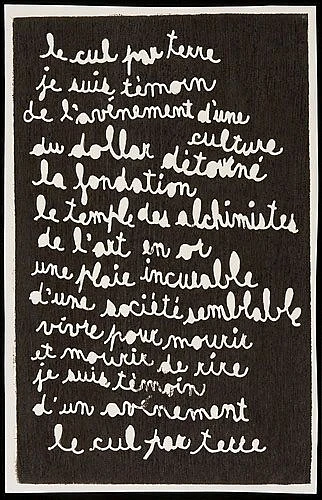 le cul par terre
je suis tèmoin
de l'avénement d'une
culture
du dollar détourné
la fondation
le temple des alchimistes
de l'art en or
une plaie incurable
d'une société semblable
vivre pour mourir
et mourir de rire
je suis tèmoin
d'un avénement
le cul par terre